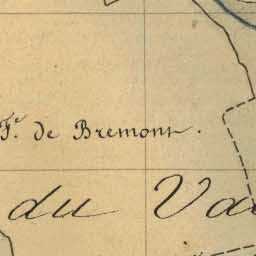 Fe. de Bremont.
du Va